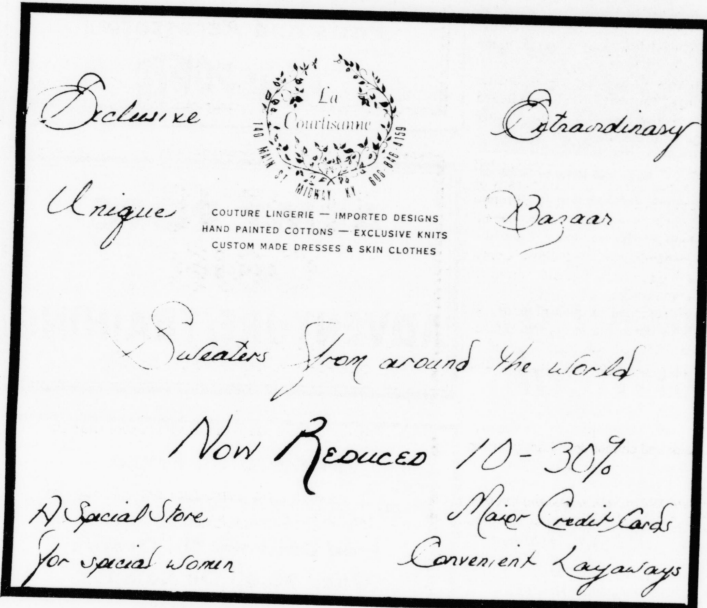 Exclusive
La
Courtisanne
140 MAIN ST. MIDWAY, KY. 606 846 4159
Extraordinary
Unique
Bazaar
COUTURE LINGERIE — IMPORTED DESIGNS
HAND PAINTED COTTONS — EXCLUSIVE KNITS
CUSTOM MADE DRESSES & SKIN CLOTHES
Sweaters from around the world
Now REDUCED 10-30%
A Special Store
for special women
Major Credit Cards
Convenient Layaways